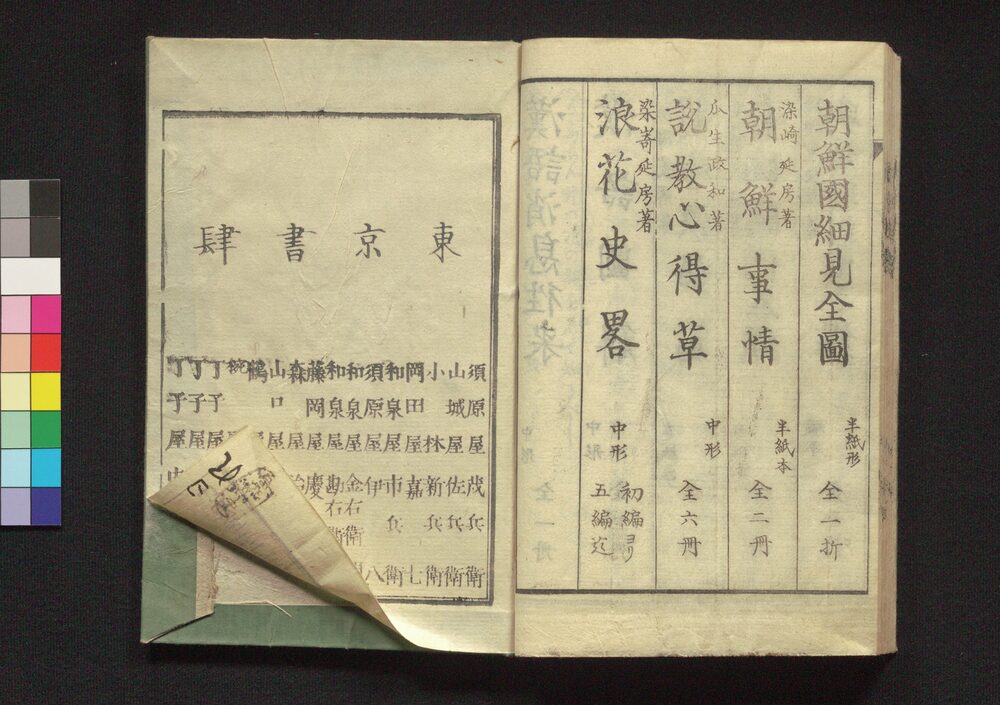 朝鮮國細見全圖 半紙形 全一折
染崎延房著
朝鮮事情 半紙本 全二冊
瓜生政和著
説教心得草 中形 全六冊
染嵜延房著
浪花史畧 中形 初編ヨリ五編迄
東京書肆
須原屋茂兵衛
山城屋佐兵衛
小林新兵衛
岡田屋嘉七
和泉屋市兵衛
須原屋伊八
和泉屋金右衛
和泉屋勘右衛
藤岡屋慶
森屋
山口屋
鶴
丁子屋
丁子屋
丁子屋